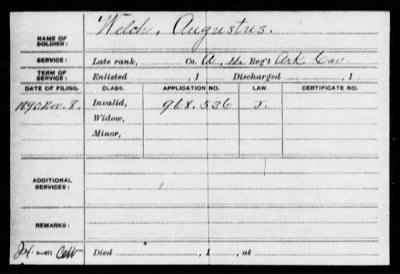 NAME OF SOLDIER: Welch, Augustus.
SERVICE: Late rank, Co. A, 4th Reg't Ark Cav
TERM OF SERVICE: Enlisted , 1 Discharged , 1
DATE OF FILING. CLASS. APPLICATION NO. LAW. CERTIFICATE NO.
1890 Nov. 8. Invalid, 968.536
Widow,
Minor,
ADDITIONAL SERVICES:
REMARKS:
Died , 1 , at